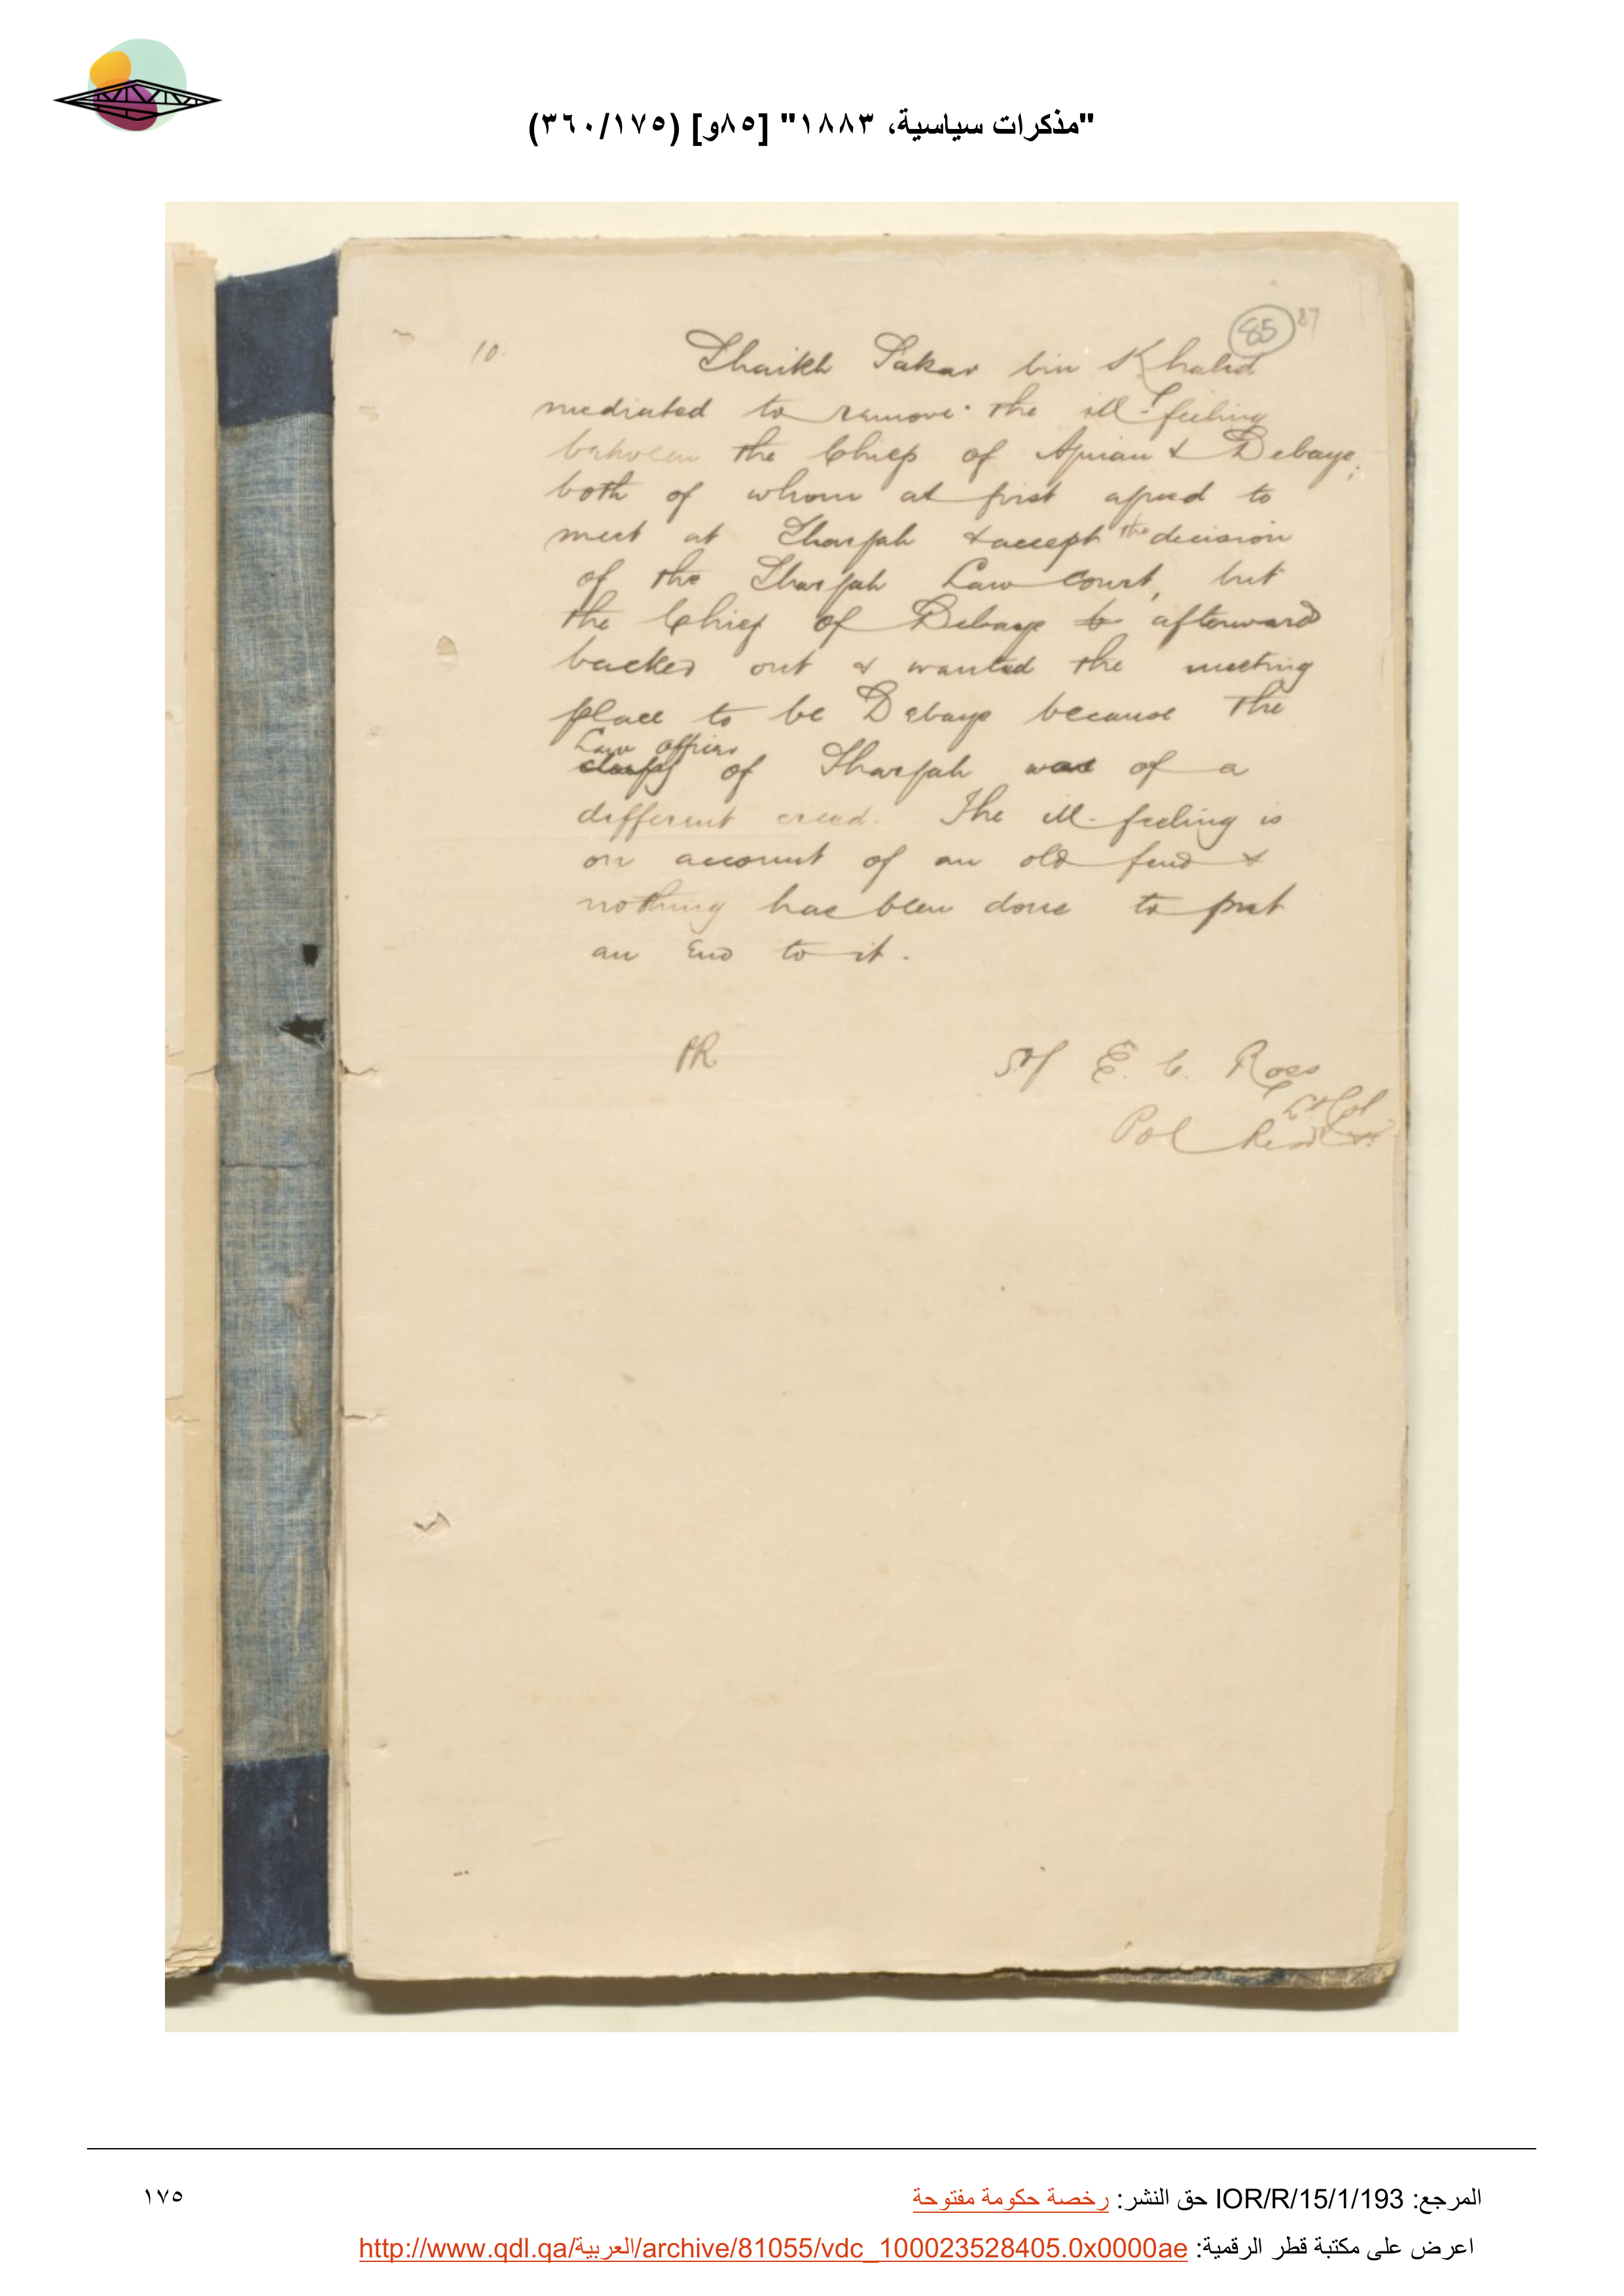 "مذكرات سياسية، ١٨٨٣" [٨٥و] (٣٦٠/١٧٥)
85 87
10. Shaikh Sakar bin Khalid
mediated to remove the ill-feeling
between the Chiefs of Ajman & Debaye;
both of whom at first agreed to
meet at Shargah & accept the decision
of the Shargah Law court, but
the Chief of Debaye afterward
backed out & wanted the meeting
place to be Debaye because the
Law officer
of Shargah was of a
different creed. The ill-feeling is
on account of an old feud &
nothing has been done to put
an end to it.
Sd/ E. C. Ross
Lt Col
Pol Resdt
المرجع: IOR/R/15/1/193 حق النشر: رخصة حكومة مفتوحة
١٧٥
اعرض على مكتبة قطر الرقمية: http://www.qdl.qa/العربية/archive/81055/vdc_100023528405.0x0000ae